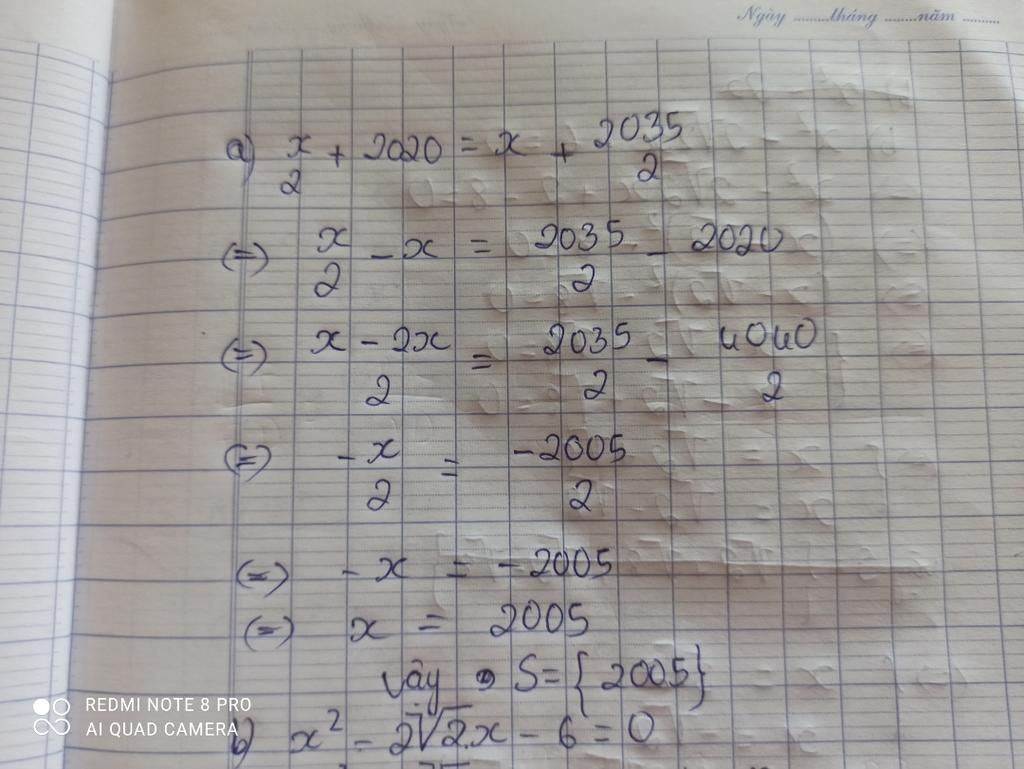 Ngày ........tháng ........năm .........
a) x/2 + 2020 = x + 2035/2
(=) x/2 - x = 2035/2 - 2020
(=) x - 2x/2 = 2035/2 - 4040/2
(=) -x/2 = -2005/2
(=) -x = -2005
(=) x = 2005
Vậy S = {2005}
b) x² - 2√2x - 6 = 0
REDMI NOTE 8 PRO
AI QUAD CAMERA